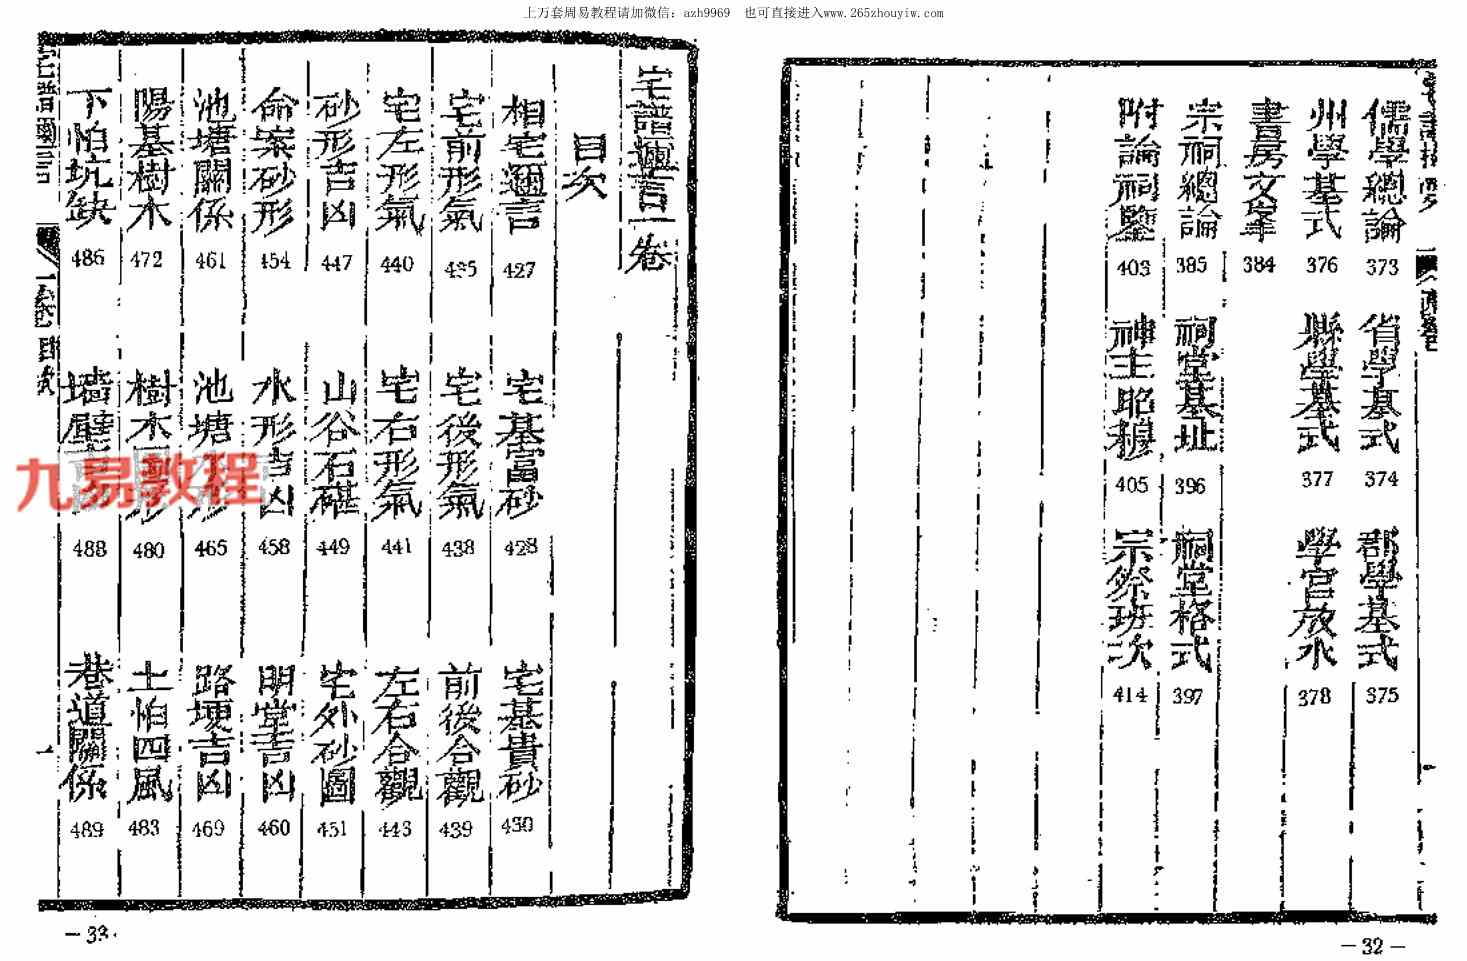 上万套周易教程请加微信：azh9969　也可直接进入www.265zhouyiw.com
儒學總論 373 省學基式 374 郡學基式 375
州學基式 376 縣學基式 377 學宮放水 378
書房文峯 384
宗祠總論 385 祠堂基址 396 祠堂格式 397
附論祠鑒 403 神主昭穆 405 宗祭班次 414
－32－
宅譜邇言一卷
目次
相宅邇言 427 宅基富砂 428 宅基貴砂 430
宅前形氣 435 宅後形氣 438 前後合觀 439
宅左形氣 440 宅右形氣 441 左右合觀 443
砂形吉凶 447 山谷石磪 449 宅外砂圖 451
命案砂形 454 水形吉凶 458 明堂吉凶 460
池塘關係 461 池塘 形 465 路埂吉凶 469
陽基樹木 472 樹木圖形 480 土怕四風 483
下怕坑缺 486 墻壁吉凶 488 巷道關係 489
宅譜邇言
一卷目次
一
－33
九易教程